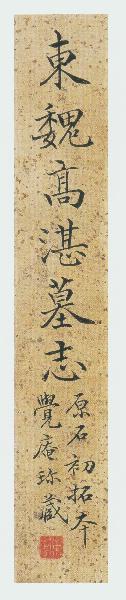 東魏高湛墓志
原石初拓本
覺庵珍藏